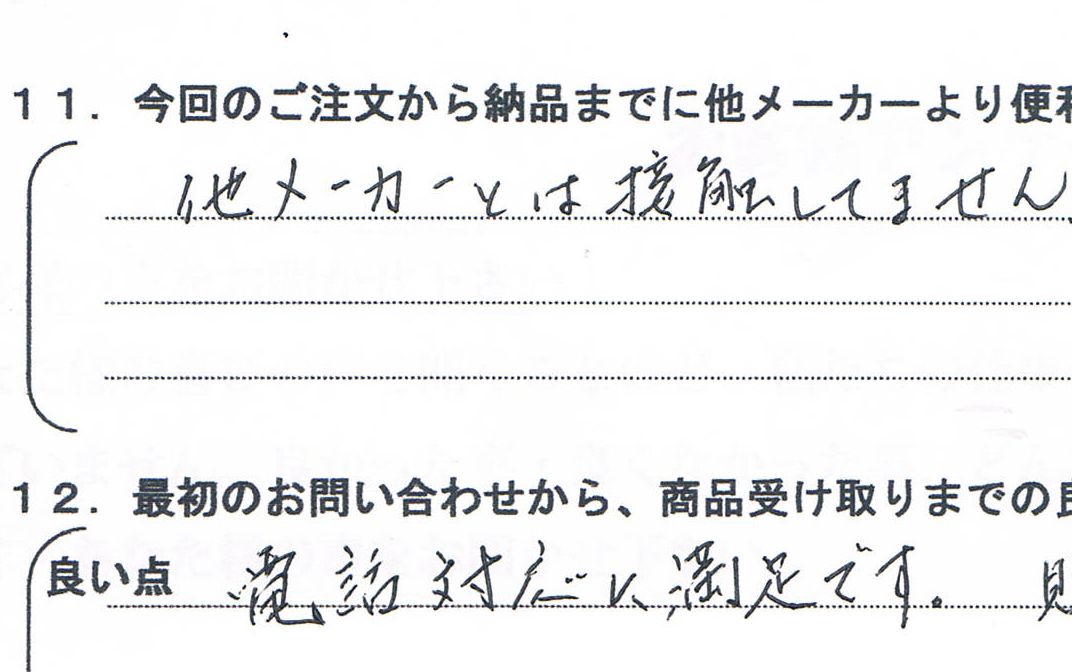 11．今回のご注文から納品までに他メーカーより便利
他メーカーとは接触してません
12．最初のお問い合わせから、商品受け取りまでの良
良い点 電話対応に満足です。 見